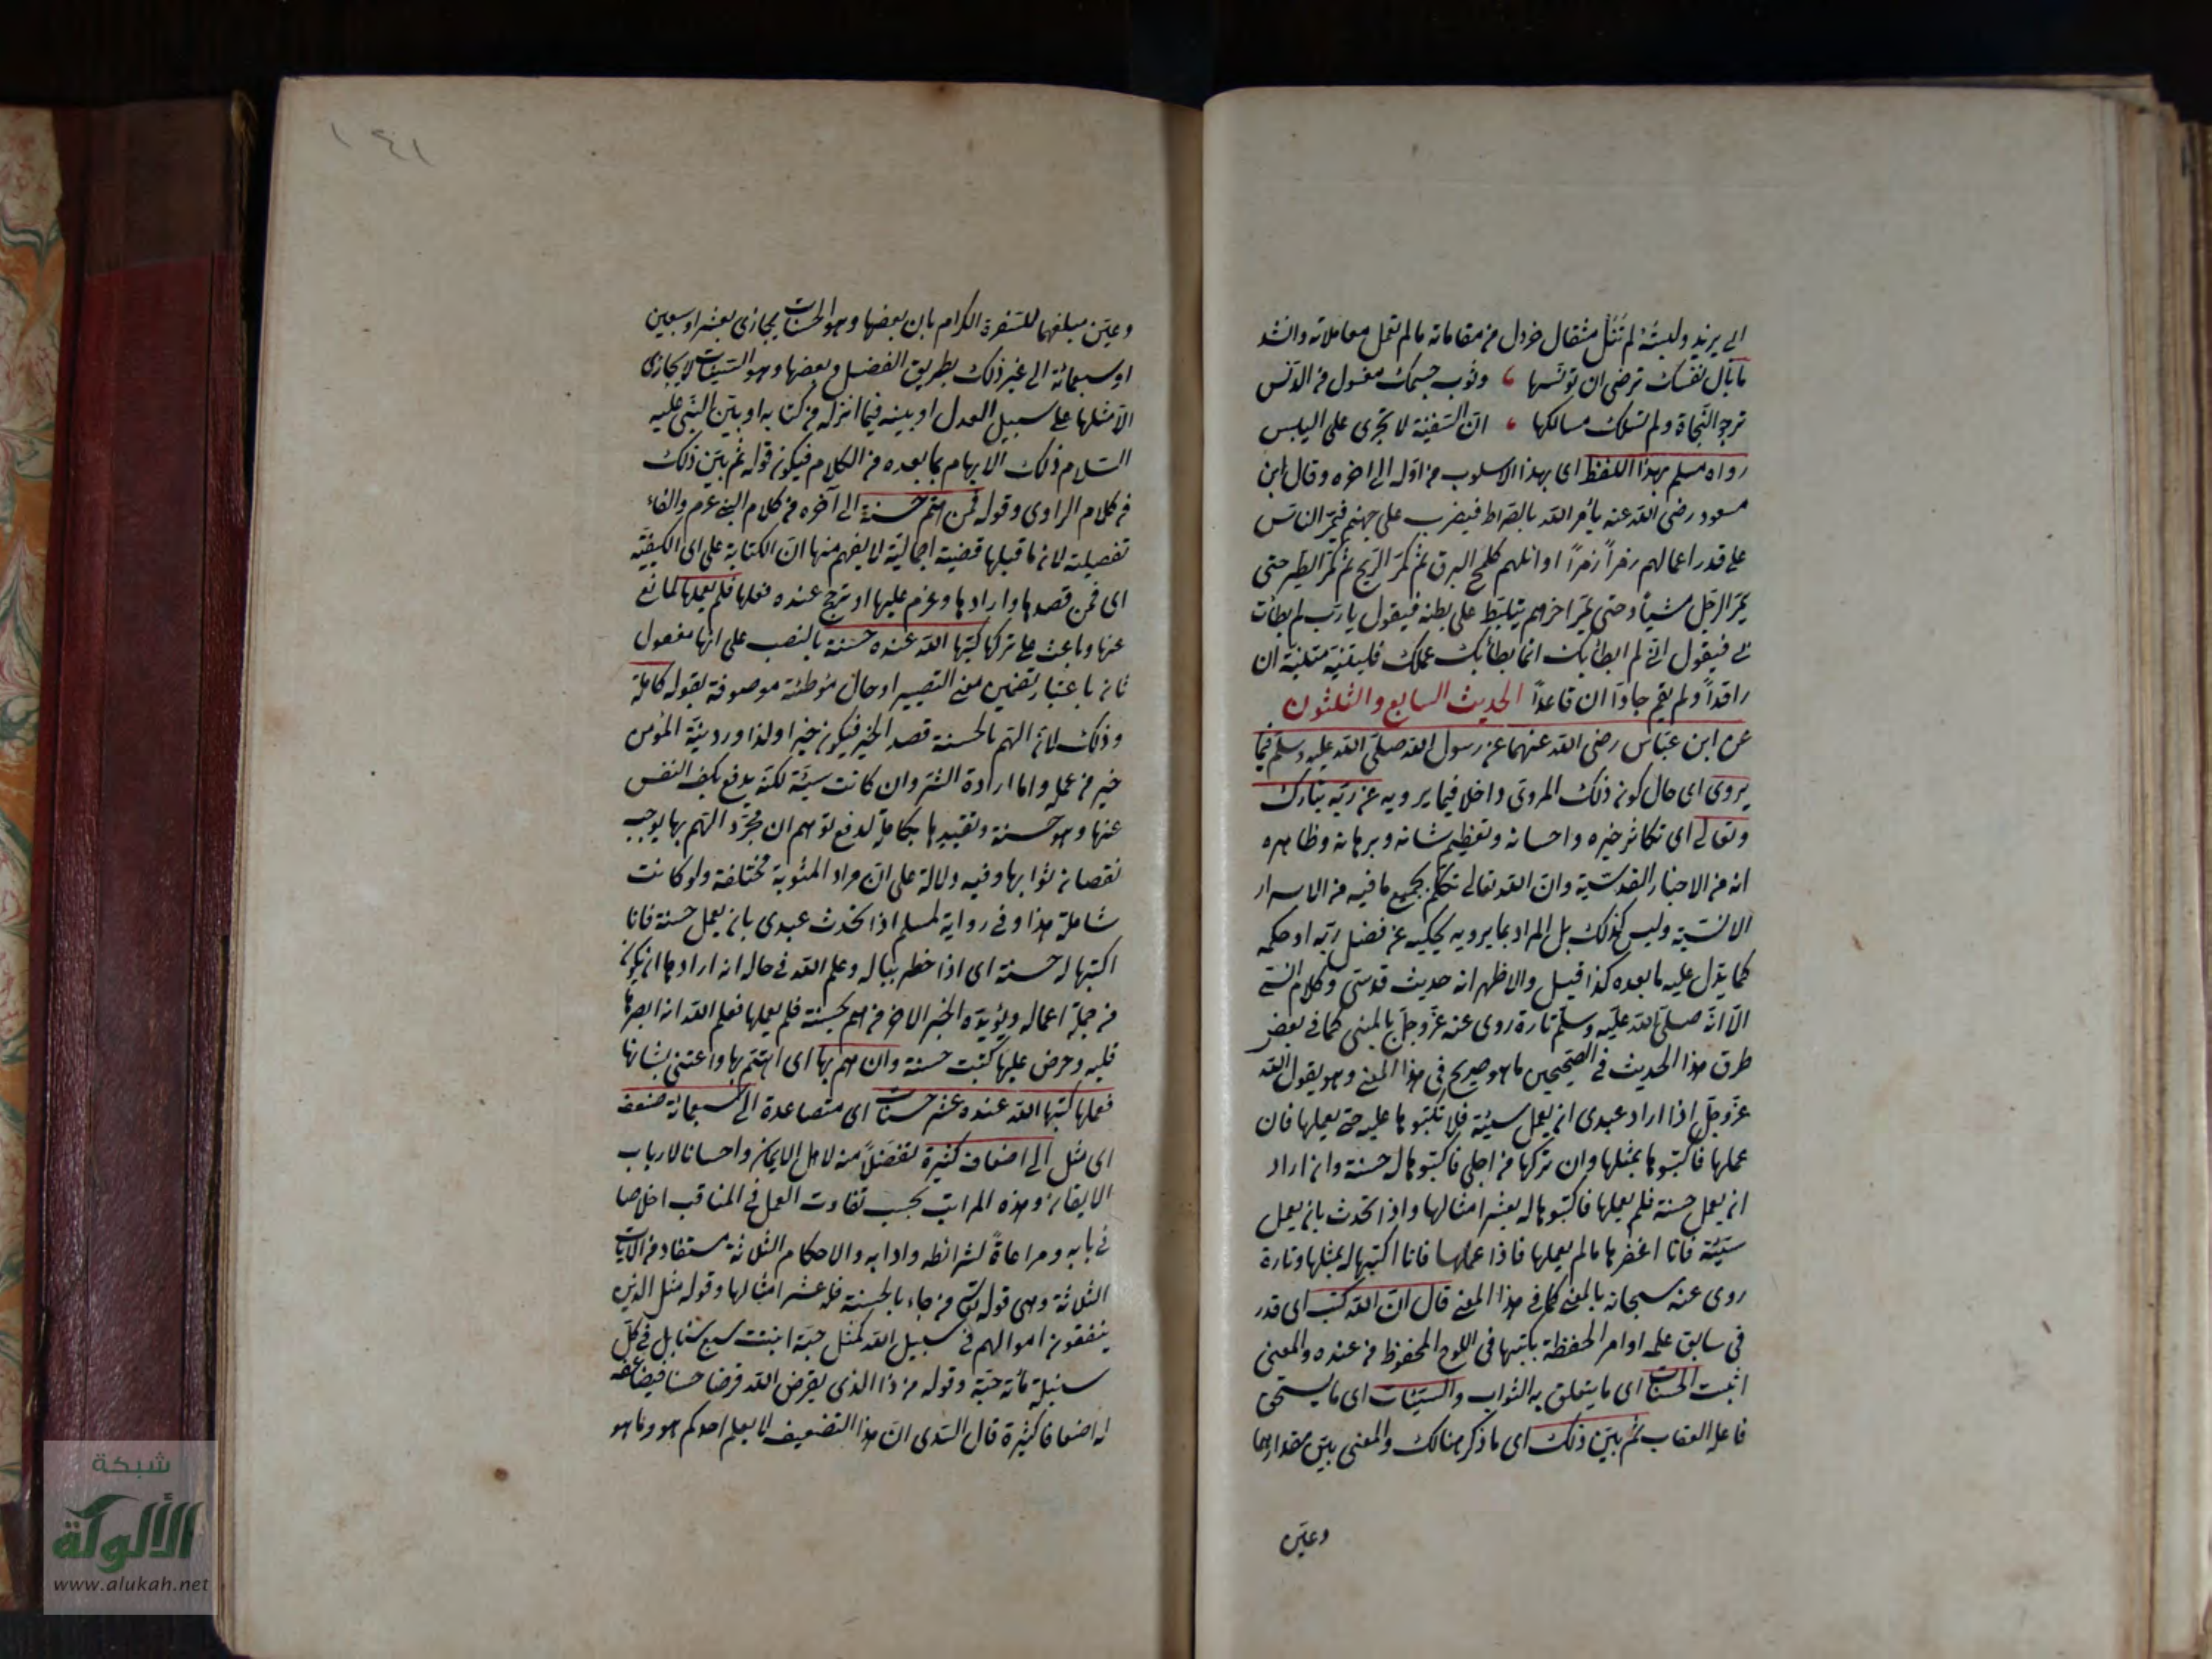 الى يزيد ولبسته لم تنل مثقال خردل من مقاماته ما لم تعمل معاملاته وانشد
ما بال نفسك ترضى ان تدنسها ، وثوب جسمك مغسول من الدنس
ترجو النجاة ولم تسلك مسالكها ، ان السفينة لا تجرى على اليبس
رواه مسلم بهذا اللفظ اى بهذا الاسلوب من اوله الى اخره وقال ابن
مسعود رضى الله عنه يأمر الله بالصراط فيضرب على جهنم فيمر الناس
على قدر اعمالهم زمراً زمراً اوائلهم كلمح البرق ثم كمر الريح ثم كمر الطير حتى
يمر الرجل مشيا وحتى يمر اخرهم يتلبط على بطنه فيقول يا رب لم ابطأت
بى فيقول انى لم ابطأ بك انما بطأ بك عملك
راقداً ولم يقم قاعداً الحديث السابع والثلثون
عن ابن عباس رضى الله عنهما عن رسول الله صلى الله عليه وسلم فيما
يروى اى حال كون ذلك المروى داخلا فيما يرويه عن ربه تبارك
وتعالى اى تكاثر خيره واحسانه وتعظيم شانه وبرهانه وظاهره
انه من الاخبار القدسية وان الله تعالى تكلم بجميع ما فيه من الاسرار
الانسية وليس كذلك بل المراد بما يرويه يحكيه عن فضل ربه او حكمه
كما يدل عليه ما بعده كذا قيل والاظهر انه حديث قدسى وكلام انسى
الا انه صلى الله عليه وسلم تارة روى عنه عز وجل بالمبنى كما فى بعض
طرق هذا الحديث فى الصحيحين ما هو صريح فى هذا المعنى وهو يقول الله
عز وجل اذا اراد عبدى ان يعمل سيئة فلا تكتبوها عليه حتى يعملها فان
عملها فاكتبوها بمثلها وان تركها من اجلى فاكتبوها له حسنة وان اراد
ان يعمل حسنة فلم يعملها فاكتبوها له بعشر امثالها واذا تحدث بان يعمل
سيئة فانا اغفرها ما لم يعملها فاذا عملها فانا اكتبها له بمثلها وتارة
روى عنه سبحانه بالمعنى كما فى هذا المعنى قال ان الله كتب اى قدر
فى سابق علمه او امر الحفظة بكتبها فى اللوح المحفوظ من عنده والمعنى
اثبت الحسنات اى ما يتعلق به الثواب والسيئات اى ما يستحق
فاعله العقاب ثم بين ذلك اى ما ذكر هنالك والمعنى بين مقدارهما
وعين
١٤١
وعين مبلغهما للسفرة الكرام بان بعضها وهو الحسنات يجازى بعشر او سبعين
او سبعمائة الى غير ذلك بطريق الفضل وبعضها وهو السيئات لا يجازى
الا مثلها على سبيل العدل او بينه فيما انزله من كتابه او بين النبى عليه
السلام ذلك الابهام بما بعده من الكلام فيكون قوله ثم بين ذلك
من كلام الراوى وقوله فمن هم بحسنة الى آخره من كلام النبى عم والفاء
تفصيلية لان ما قبلها قضية اجمالية لا يفهم منها ان الكتابة على اى الكيفية
اى فمن قصدها وارادها وعزم عليها او ترجح عنده فعلها فلم يعملها لمانع
عنها وباعث على تركها كتبها الله عنده حسنة بالنصب على انها مفعول
ثان باعتبار تضمين معنى التصيير او حال موطئة موصوفة بقوله كاملة
وذلك لان الهم بالحسنة قصد الخير فيكون خيرا ولذا ورد نية المؤمن
خير من عمله واما ارادة الشر وان كانت سيئة لكنه يدفع بكف النفس
عنها وهو حسنة وتقييدها بكاملة لدفع توهم ان مجرد الهم بها يوجب
نقصان ثوابها وفيه دلالة على ان مراد المثوبة مختلفة ولو كانت
شاملة هذا وفى رواية لمسلم اذا تحدث عبدى بان يعمل حسنة فانا
اكتبها له حسنة اى اذا خطر بباله وعلم الله فى حاله انه ارادها ان يكون
من جملة اعماله ويؤيده الخبر الاخر من هم بحسنة فلم يعملها فعلم الله انه اشعرها
قلبه وحرض عليها كتبت حسنة وان هم بها اى اهتم بها واعتنى بشانها
فعملها كتبها الله عنده عشر حسنات اى متصاعدة الى سبعمائة ضعف
اى مثل الى اضعاف كثيرة تفضلاً منه لاهل الايمان واحسانا لارباب
الايقان وهذه المراتب بحسب تفاوت العمل فى المناقب اخلاصا
فى بابه ومراعاة لشرائطه وادابه والاحكام الثلاثة مستفاد من الايات
الثلاثة وهى قوله تعالى من جاء بالحسنة فله عشر امثالها وقوله مثل الذين
ينفقون اموالهم فى سبيل الله كمثل حبة انبتت سبع سنابل فى كل
سنبلة مائة حبة وقوله من ذا الذى يقرض الله قرضا حسنا فيضاعفه
له اضعافا كثيرة قال السدى ان هذا التضعيف لا يعلم احدكم هو وما هو
شبكة
الألوكة
www.alukah.net